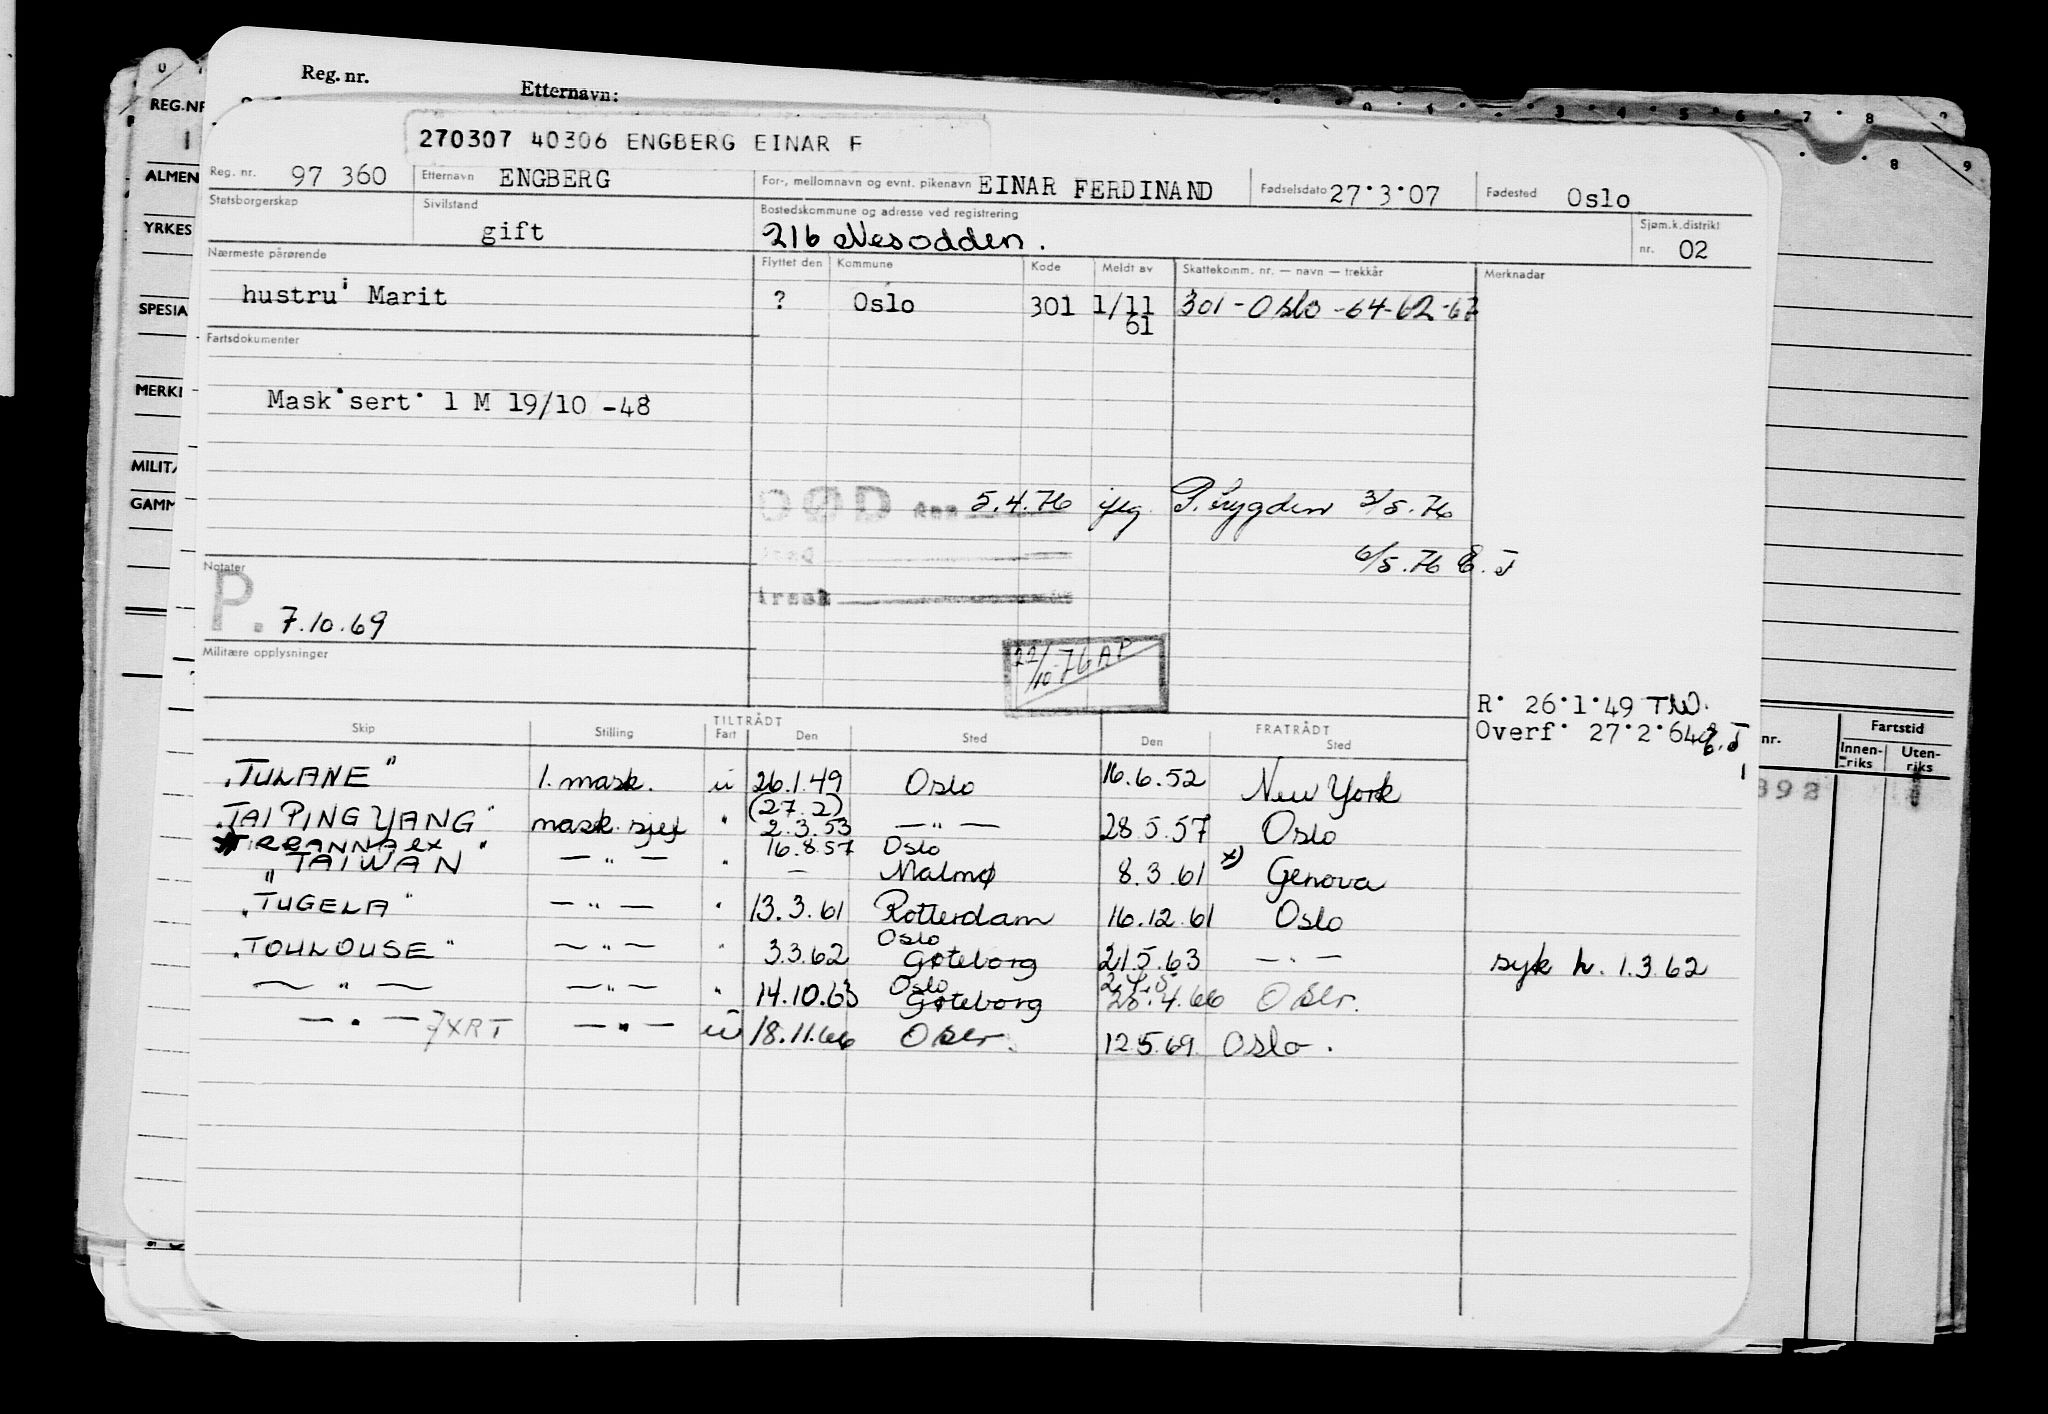 Reg. nr. Etternavn:
REG.NR
270307 40306 ENGBERG EINAR F
Reg. nr. 97 360 Etternavn ENGBERG For-, mellomnavn og evnt. pikenavn EINAR FERDINAND Fødselsdato 27.3.07 Fødested Oslo
ALMEN
Statsborgerskap Sivilstand gift Bostedskommune og adresse ved registrering 216 Nesodden. Sjøm.k.distrikt nr. 02
YRKES
Nærmeste pårørende Flyttet den Kommune Kode Meldt av Skattekomm. nr. — navn — trekkår Merknader
hustru: Marit ? Oslo 301 1/11 61 301 - Oslo -64-62-67
SPESIA
Fartsdokumenter
MERKI
Mask.sert. 1 M 19/10 -48
MILITÆ
GAMM
DØD den 5.4.76 iflg. P. Trygden 3/5.76
6/5.76 E.J
Årsak
Notater
P. 7.10.69
22/10-76 AP
Militære opplysninger
R. 26.1.49 TW.
Overf. 27.2.64 E.J
Skip Stilling TILTRÅDT Fart Den Sted FRATRÅDT Den Sted
nr. Fartstid Innen-riks Uten-riks
392
"TULANE" 1. mask. u 26.1.49 Oslo 16.6.52 New York
(27.2)
"TAI PING YANG" mask. sjef " 2.3.53 — " — 28.5.57 Oslo
TIRRANNA ex " 16.8.57 Oslo
"TAIWAN — " — " — Malmø 8.3.61 x) Genova
"TUGELA" — " — " 13.3.61 Rotterdam 16.12.61 Oslo
Oslo
"TOULOUSE" — " — " 3.3.62 Gøteborg 21.5.63 — " — syk h. 1.3.62
Oslo
— " — — " — " 14.10.63 Gøteborg 28.4.66 Oslo.
— " — 7XRT — " — u 18.11.66 Oslo. 12.5.69. Oslo.